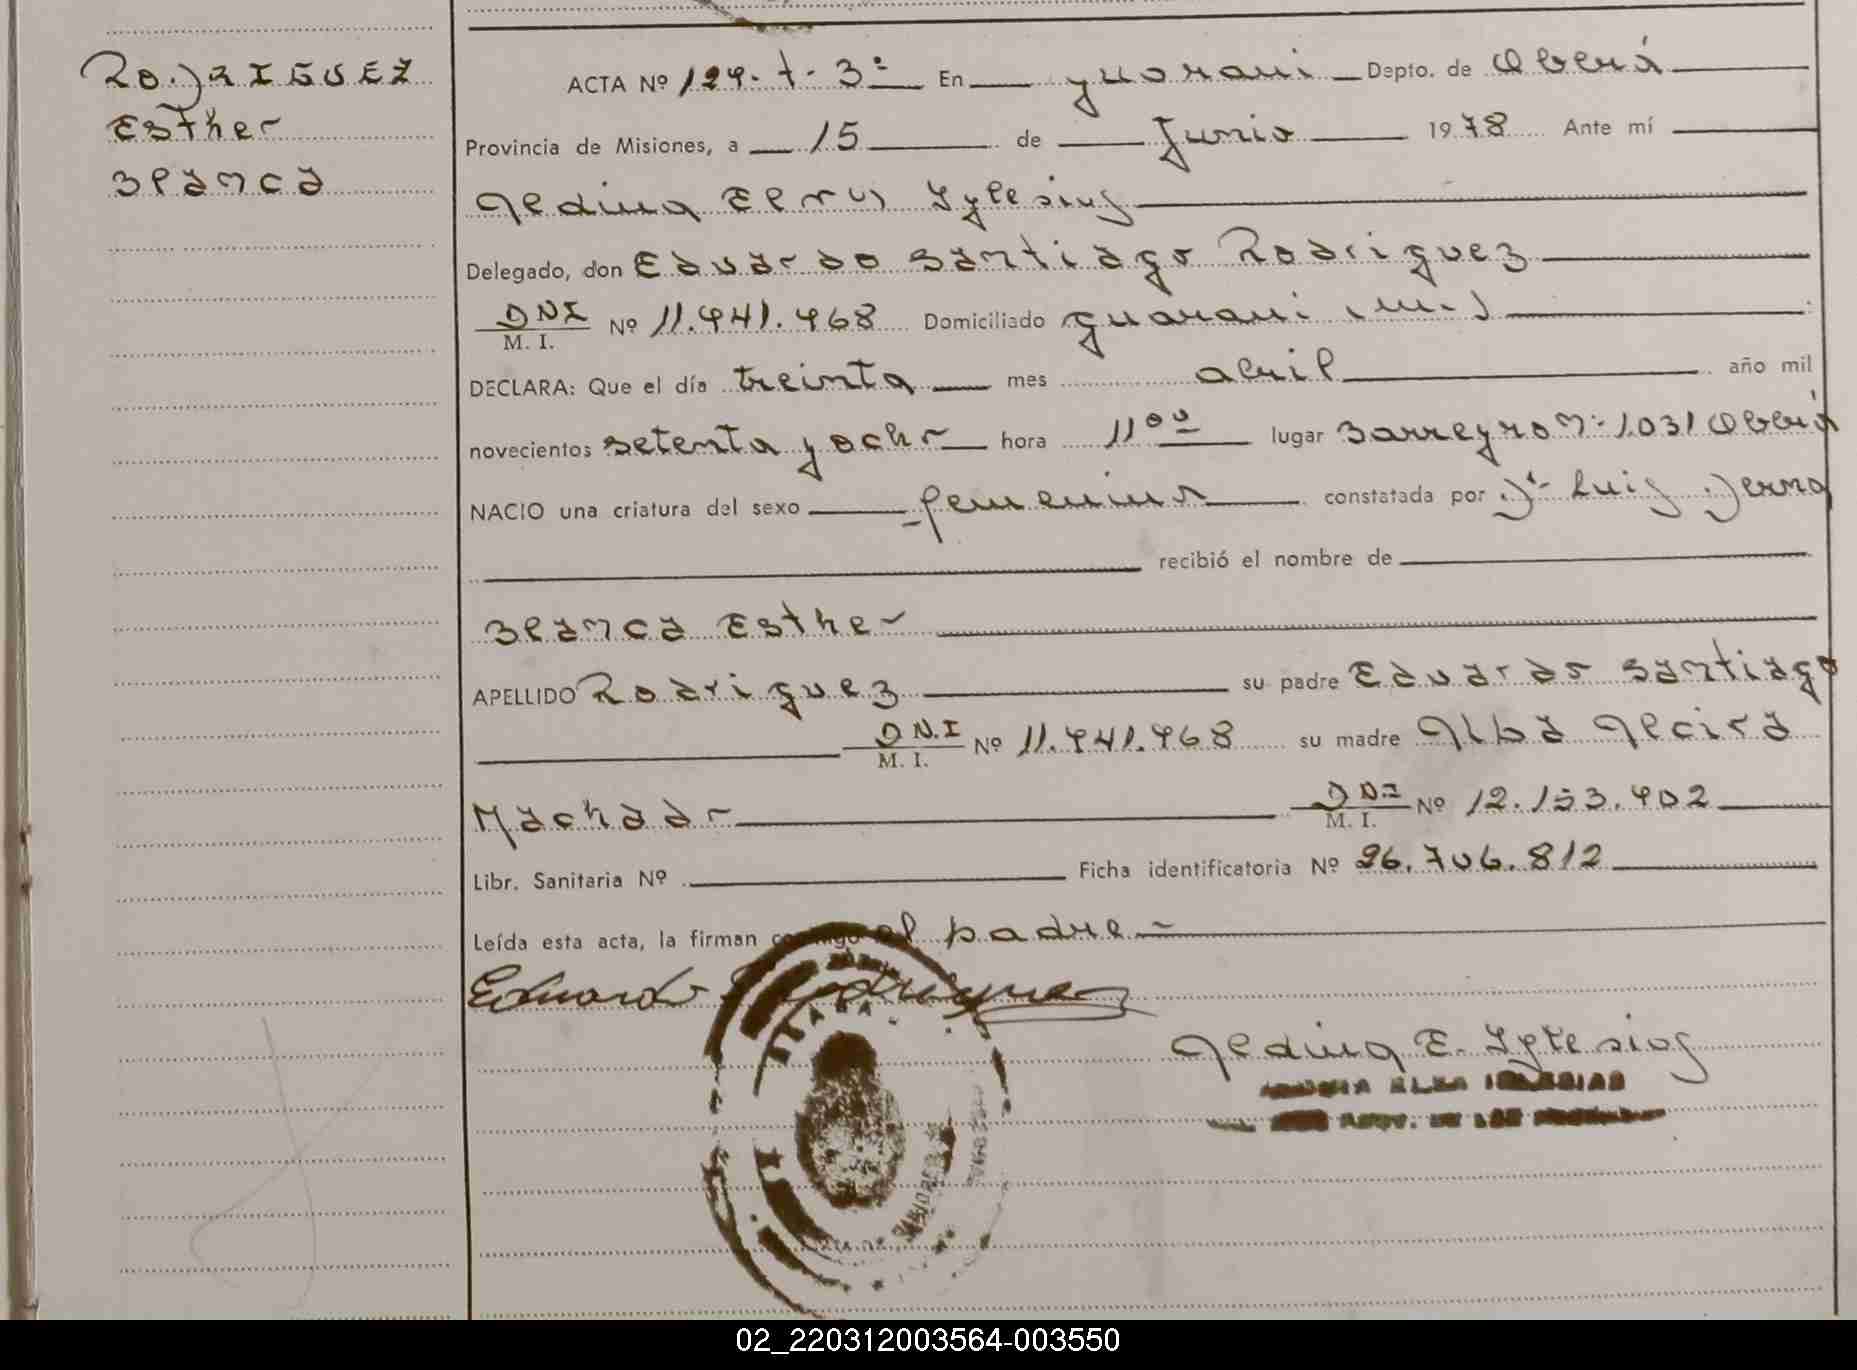 RODRIGUEZ
Esther
Blanca
ACTA Nº 124. t. 3º En guarani Depto. de Oberá
Provincia de Misiones, a 15 de Junio 1978 Ante mí
Aldina Elsa Iglesias
Delegado, don Eduardo Santiago Rodriguez
DNI M. I. Nº 11.441.468 Domiciliado guarani
DECLARA: Que el día treinta mes abril año mil
novecientos setenta y ocho hora 11 00 lugar Barreyro Nº 1031 Oberá
NACIO una criatura del sexo femenino constatada por Dr. Luis
recibió el nombre de
Blanca Esther
APELLIDO Rodriguez su padre Eduardo Santiago
D N.I M. I. Nº 11.441.468 su madre Alba Alcira
Machado DNI M. I. Nº 12.153.402
Libr. Sanitaria Nº Ficha identificatoria Nº 26.706.812
Leída esta acta, la firman conmigo el padre
Eduardo Rodriguez
Aldina E. Iglesias
ELSA IGLESIAS
02_220312003564-003550